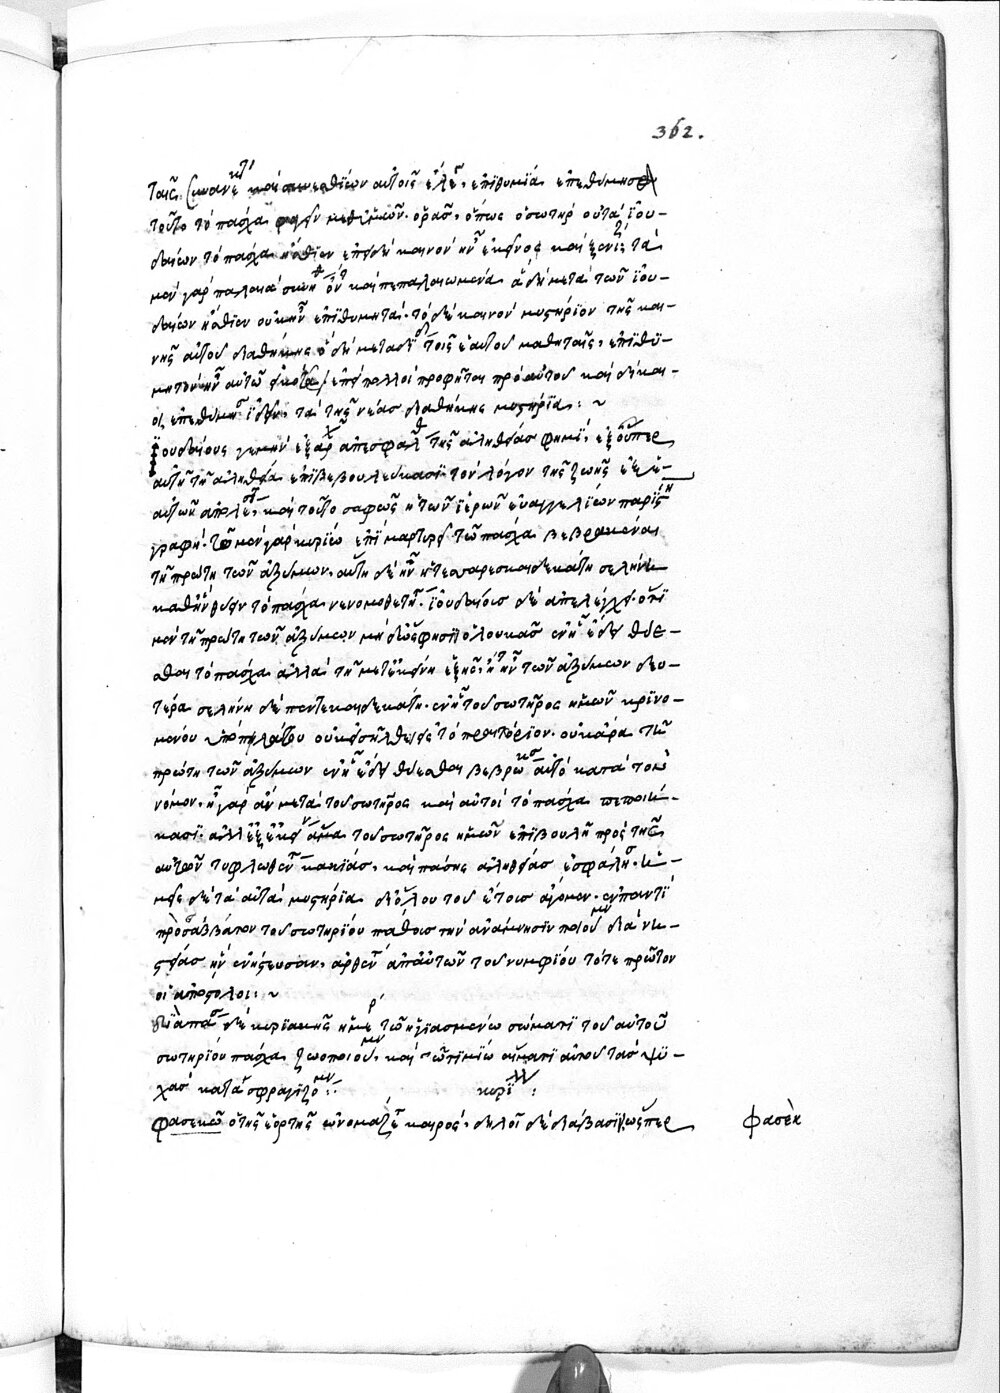 362.
ταῖς συνανέκειτο καὶ συνεσθίων αὐτοῖς ἔλεγεν, ἐπιθυμία ἐπεθύμησα
τοῦτο τὸ πάσχα φαγεῖν μεθ' ὑμῶν. ὁρᾶς, ὅπως ὁ σωτὴρ οὐ τὰ ἰου-
δαίων τὸ πάσχα ἤσθιεν ἐπειδὴ καινὸν ἦν ἐκεῖνος καὶ ξενίζ τὰ
μὲν γὰρ παλαιὰ ἦν καὶ πεπαλαιωμένα ἃ δὴ μετὰ τῶν ἰου-
δαίων ἤσθιεν οὐκ ἦν ἐπιθυμητά. τὸ δὲ καινὸν μυστήριον τῆς και-
νῆς αὐτοῦ διαθήκης ὃ δὴ μετεδίδου τοῖς ἑαυτοῦ μαθηταῖς, ἐπιθυ-
μητὸν ἦν αὐτῷ εἰκότως ἐπεὶ πολλοὶ προφῆται πρὸ αὐτοῦ καὶ δίκαι-
οι, ἐπεθύμησαν ἰδεῖν, τὰ τῆς νέας διαθήκης μυστήρια: ~
ἰουδαίους γε μὴν ἐξ ἀρχ ἀπεσφάλθ τῆς ἀληθείας φημί, ἐξ οὗπερ
αὐτῇ τῇ ἀληθείᾳ ἐπιβεβουλεύκασι τὸν λόγον τῆς ζωῆς ἐξ ἑ-
αυτῶν ἀπελ καὶ τοῦτο σαφῶς ἡ τῶν ἱερῶν εὐαγγελίων παρίστησι
γραφή. τὸν μὲν γὰρ κύριον ἐπιμαρτυρεῖ τὸ πάσχα βεβρωκέναι
τῇ πρώτῃ τῶν ἀζύμων. αὕτη δὲ ἦν ἡ τεσσαρεσκαιδεκάτη σελήνη
καθ' ἣν θύειν τὸ πάσχα νενομοθέτητ ἰουδαίοις δὲ ἀπελέγχει ὅτι
μὲν τῇ πρώτῃ τῶν ἀζύμων ὥς φησιν ὁ λουκᾶς ἐν ᾗ ἔδει θύε-
σθαι τὸ πάσχα ἀλλὰ τῇ μετ' ἐκείνῃ ἑξῆς ἥτις ἦν τῶν ἀζύμων δευ-
τέρα σελήνη δὲ πεντεκαιδεκάτη. ἐν ᾗ τοῦ σωτῆρος ἡμῶν κρινο-
μένου ὑπὸ πιλάτου οὐκ εἰσῆλθον εἰς τὸ πραιτόριον. οὐκ ἄρα τῇ
πρώτῃ τῶν ἀζύμων ἐν ᾗ ἔδει θύεσθαι βεβρώκασ αὐτὸ κατὰ τὸν
νόμον. ἦ γὰρ ἂν μετὰ τοῦ σωτῆρος καὶ αὐτοὶ τὸ πάσχα πεποιή-
κασι. ἀλλ' ἐξ ἐκείνου ἅμα τοῦ σωτῆρος ἡμῶν ἐπιβουλῇ πρὸς τῆς
αὐτῶν τυφλωθέντ κακίας, καὶ πάσης ἀληθείας ἐσφάλησ. ἡ-
μεῖς δὲ τὰ αὐτὰ μυστήρια δι' ὅλου τοῦ ἔτους ἄγομεν. ἐν παντὶ
προσαββάτῳ τοῦ σωτηρίου πάθους τὴν ἀνάμνησιν ποιούμενοι διὰ νη-
στείας ἣν ἐνήστευσαν, ἀρθέντ ἀπ' αὐτῶν τοῦ νυμφίου τότε πρῶτον
οἱ ἀπόστολοι: ~
διὰ πάσης δὲ κυριακῆς ἡμέρ τῷ ἡγιασμένῳ σώματι τοῦ αὐτοῦ
σωτηρίου πάσχα ζωοποιούμεν καὶ τῷ τιμίῳ αἵματι αὐτοῦ τὰς ψυ-
χὰς κατασφραγιζόμεν: κυρίλλ :
φασεκὼ ὁ τῆς ἑορτῆς ὠνομάζετ καιρὸς, δηλοῖ δὲ διάβασιν, ὥσπερ
φασὲκ